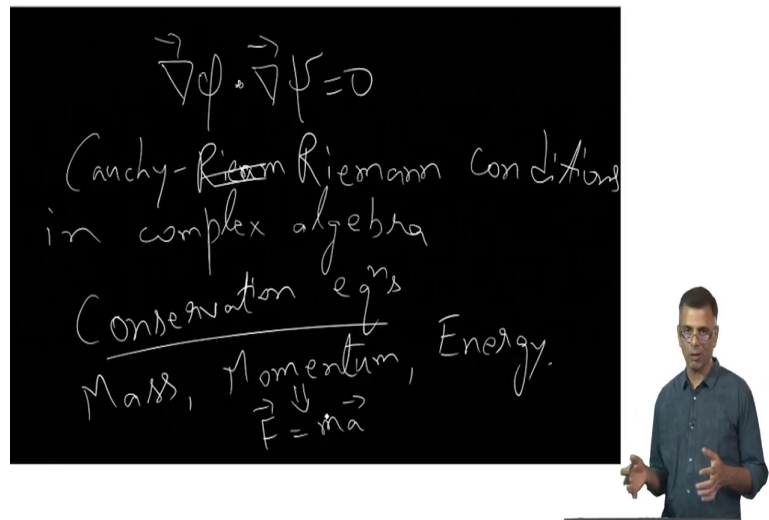 ∇⃗φ · ∇⃗ψ = 0
Cauchy-Riemann conditions
in complex algebra
Conservation eqⁿs
Mass, Momentum, Energy.
⇓
F⃗ = ma⃗